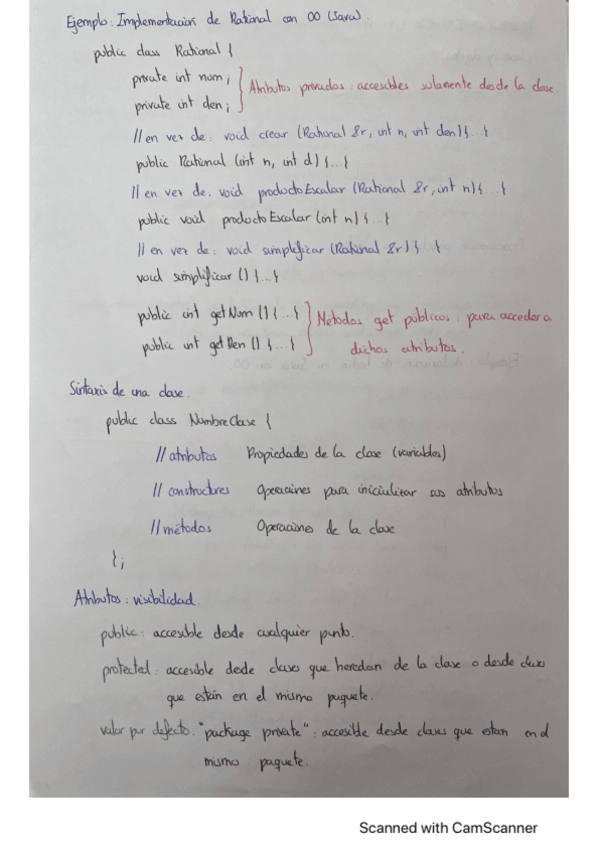 Ejemplo: Implementación de Rational con OO (Java).
public class Rational {
private int num;
private int den;
Atributos privados: accesibles solamente desde la clase.
// en vez de: void crear (Rational &r, int n, int den) {...}
public Rational (int n, int d) {...}
// en vez de: void productoEscalar (Rational &r, int n) {...}
public void productoEscalar (int n) {...}
// en vez de: void simplificar (Rational &r) { }
void simplificar () {...}
public int getNum () {...}
public int getDen () {...}
Métodos get públicos: para acceder a
dichos atributos.
Sintaxis de una clase.
public class NombreClase {
// atributos Propiedades de la clase (variables)
// constructores Operaciones para inicializar sus atributos
// métodos Operaciones de la clase
};
Atributos: visibilidad.
public: accesible desde cualquier punto.
protected: accesible desde clases que heredan de la clase o desde clases
que están en el mismo paquete.
valor por defecto: "package private": accesible desde clases que estan en el
mismo paquete.
Scanned with CamScanner